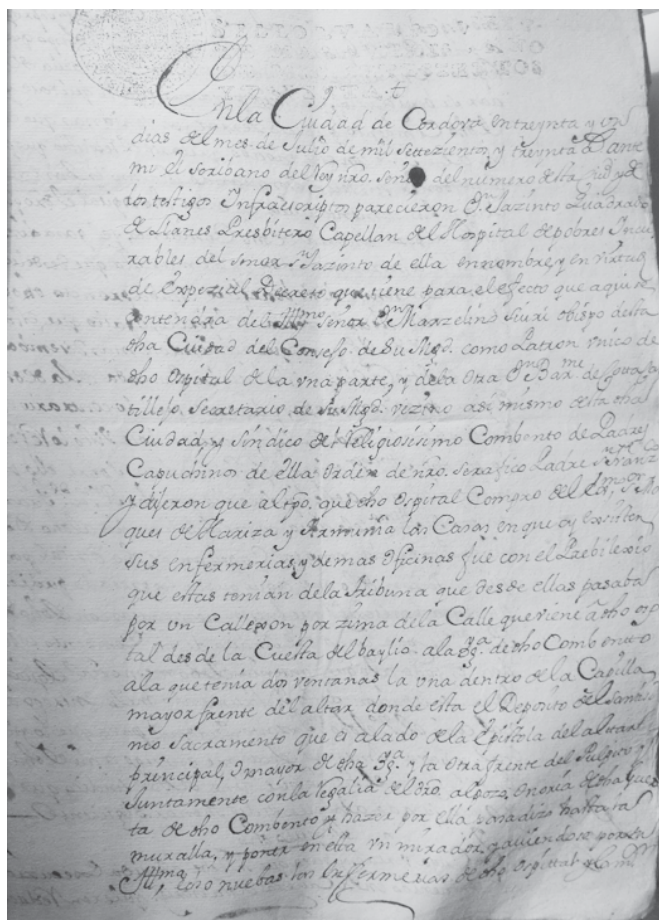 En la Ciudad de Cordova en treynta y un
dias del mes de Julio de mil setezientos y treynta ante
mi el scribano del Rey nro. señor del numero desta Ciud y
los testigos Infraescriptos parecieron Dn Jazinto Quadrado
de Llanes Presbitero Capellan del Hospital de pobres Incu
rables del señor Sn Jazinto de ella en nombre, y en virtud
de Expezial Decreto que tiene para el efecto que aqui se
contendra del Illmo señor Dn Marzelino Siuri obispo desta
dha Ciudad del Consejo de Su Mgd. como Patron unico de
dho ospital de la una parte, y de la otra Dn Barme de
tillejo Secretario de Su Mgd. vezino asi mismo desta dha
Ciudad, y sindico del Religiosissimo Combento de Padres
Capuchinos de ella orden de nro. serafico Padre Sn Franzco
y dijeron que al tpo. que dho ospital Compro del
ques de Hariza y las Casas en que oy existen
sus enfermerias, y demas oficinas fue con el Prebilexio
que estas tenian de la tribuna que desde ellas pasaba
por un Callexon por zima de la Calle que viene a dho ospi
tal desde la Cuesta del baylio a la Yga. de dho Combento
a la que tenia dos ventanas la una dentro de la Capilla
mayor frente del altar donde esta el Deposito del Santisi
mo Sacramento que es a lado de la Epistola del altar
principal, o mayor de dha Yga. y la otra frente del Pulpito y
Juntamente con la regalia del dro. al pozo, o noria de dha guer
ta de dho Combento y hazer por ella pasadizo hasta la
muralla, y poner en ella un mirador, y auiendose por su
Illma, echo nuebas las Enfermerias de dho ospittal